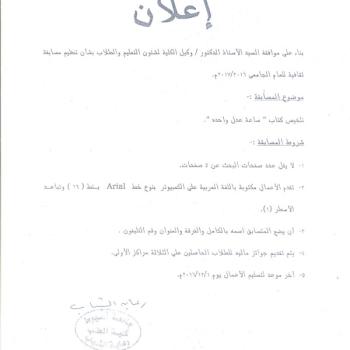 إعلان
بناء على موافقة السيد الأستاذ الدكتور / وكيل الكلية لشئون التعليم والطلاب بشأن تنظيم مسابقة
ثقافية للعام الجامعى ٢٠١٧/٢٠١٦م.
موضوع المسابقة :-
تلخيص كتاب " ساعة عدل واحده ".
شروط المسابقة :-
١- لا يقل عدد صفحات البحث عن ٥ صفحات.
٢- تقدم الأعمال مكتوبة باللغة العربية على الكمبيوتر بنوع خط Arial بنط (١٦) وتباعد
الأسطر (١).
٣- أن يضع المتسابق اسمه بالكامل والفرقة والعنوان ورقم التليفون .
٤- يتم تقديم جوائز ماليه للطلاب الحاصلين على الثلاثة مراكز الأولى.
٥- آخر موعد لتسليم الأعمال يوم ٢٠١٦/١٢/١م.
رعاية الشباب